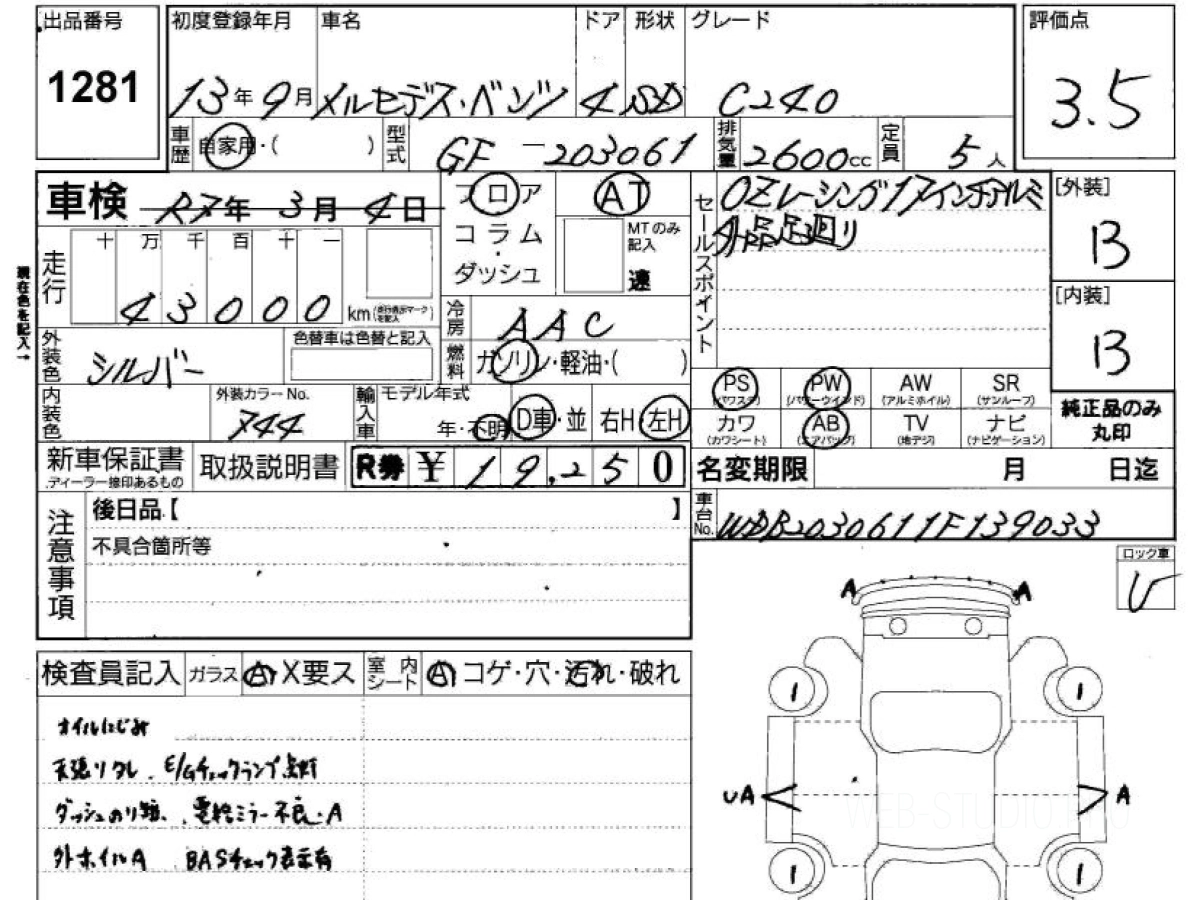 出品番号 初度登録年月 車名 ドア 形状 グレード 評価点
1281 13年9月 メルセデス・ベンツ 4 SD C240 3.5
車歴 自家用・( ) 型式 GF-203061 排気量 2600cc 定員 5人
車検 R7年3月4日 フロア AT セールスポイント OZレーシング17インチアルミ [外装]
コラム MTのみ記入 外品足廻り B
ダッシュ 速
現在色を記入→
走行 十 万 千 百 十 一
43000 km [内装]
冷房 AAC B
外装色 シルバー 色替車は色替と記入 燃料 ガソリン・軽油・( )
PS (パワステ) PW (パワーウインド) AW (アルミホイル) SR (サンルーフ)
カワ (カワシート) AB (エアバッグ) TV (地デジ) ナビ (ナビゲーション)
純正品のみ丸印
内装色 外装カラーNo. 744 輸入車 モデル年式 年・不明 D車・並 右H・左H
新車保証書 ディーラー捺印あるもの 取扱説明書 R券 ¥ 19,250 名変期限 月 日迄
車台No. WDB2030611F139033
注意事項 後日品【 】
不具合箇所等
ロック車
A A
検査員記入 ガラス A X要ス 室内シート A コゲ・穴・汚れ・破れ
オイルにじみ
天張りタレ、E/Gチェックランプ点灯
ダッシュのり跡、電格ミラー不良・A
外ホイルA BASチェック表示有
1 1
UA A
WEB-STUDIO.PRO
1 1